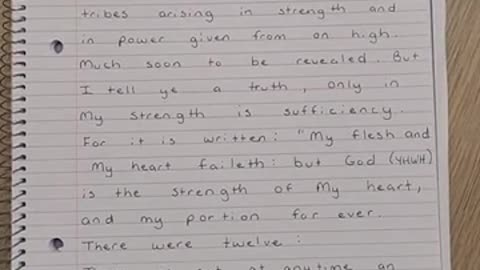 tribes arising in strength and
in power given from on high.
Much soon to be revealed. But
I tell ye a truth, only in
My strength is sufficiency.
For it is written: "My flesh and
my heart faileth: but God (YHWH)
is the strength of my heart,
and my portion for ever.
There were twelve:
at anytime an